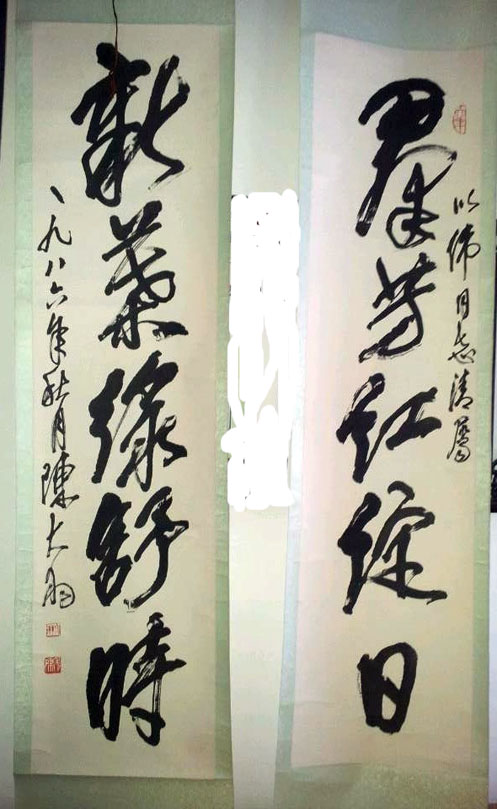 以偉同志清屬
羣芳紅綻日
新葉綠舒時
一九八六年秋月陳大羽